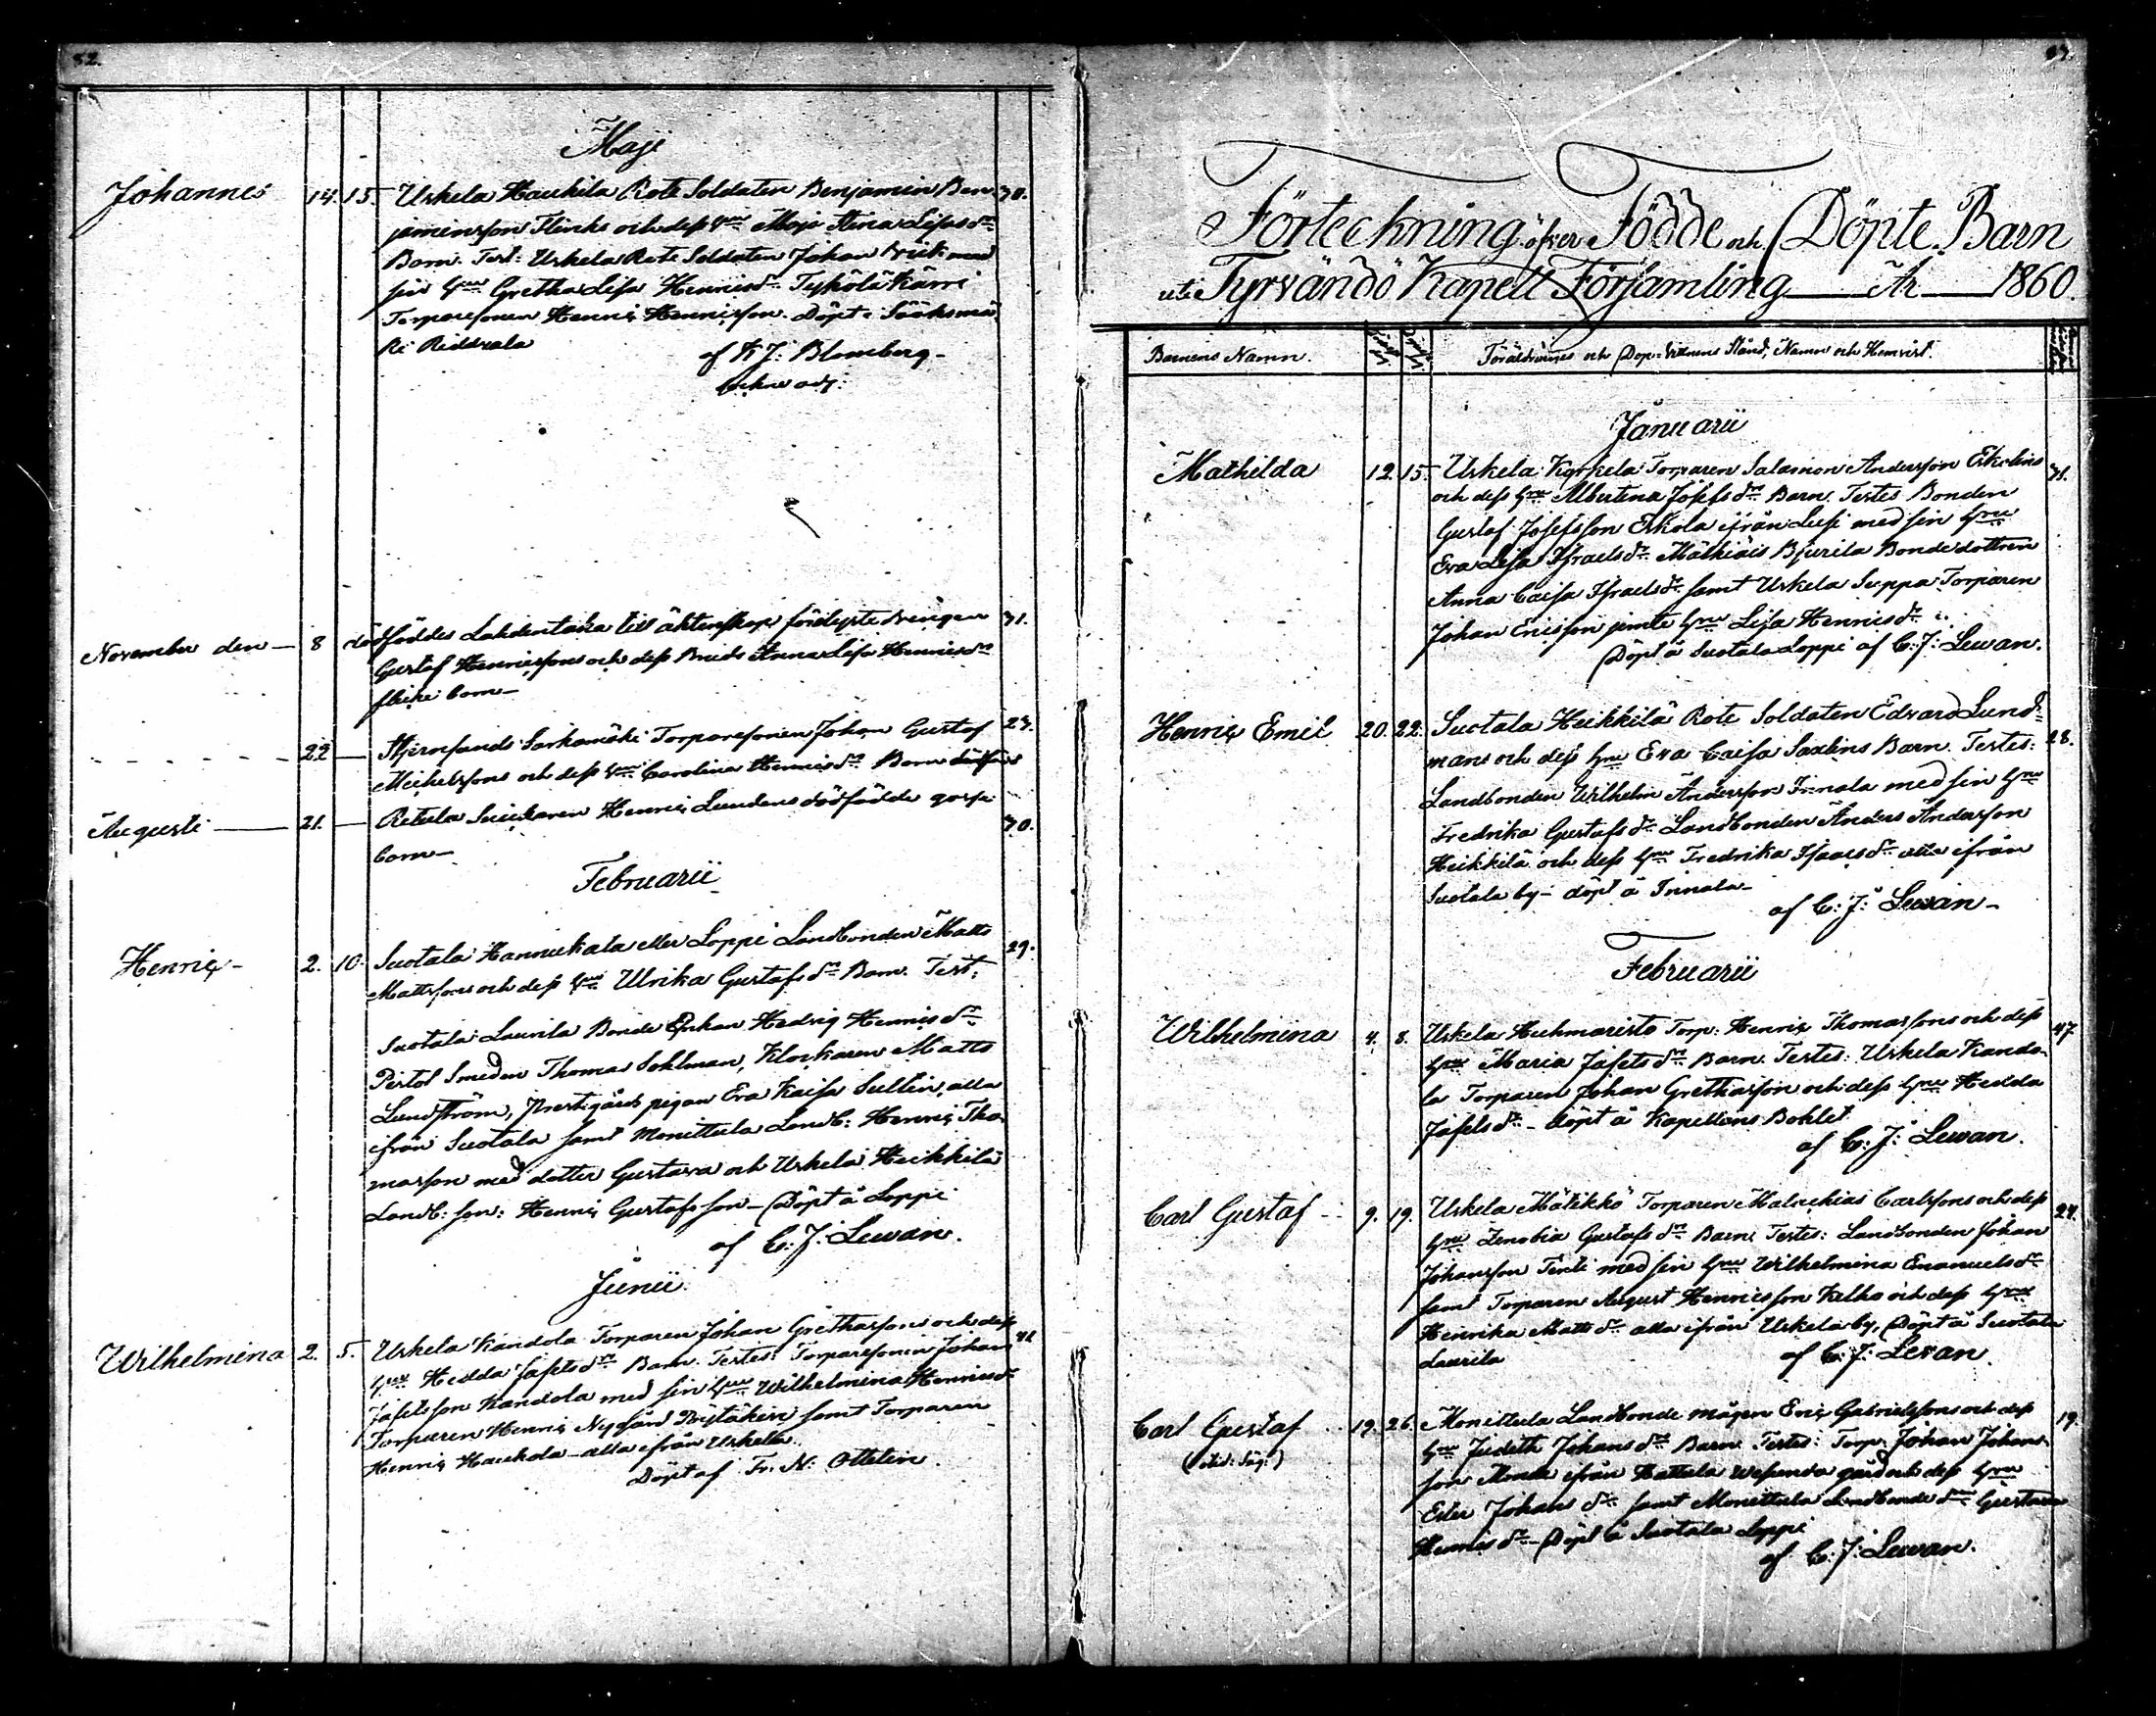 82.
Maji
Johannes 14. 15. Urkela Haukila Rote Soldaten Benjamin Ben 30.
jaminsson Flinks och dess hru Maja Stina Lisas dr
Barn. Test: Urkela Rote Soldaten Johan med
sin hru Gretha Lisa Henricsdr Tykölä Kärri
Torparesonen Henric Henricsson. Döpt å
Riddvala
af K. J. Blomberg
adj:
November den — 8 dödföddes Lahdentaka till äktenskap förlegte drängen 31.
Gustaf Henricssons och dess Brud Anna Lisa Henricsdr
flicke barn
22 — Stjernsunds Torparesonen Johan Gustaf 27.
Michelssons och dess hru Carolina Henricsdr Barn
Augusti — 21. — Retula Henric Lundens dödfödde gosse 30.
barn
Februarii
Henric 2. 10. Suotala Hannukala eller Loppi Landbonden Matts 29.
Mattssons och dess hru Ulrika Gustafsdr Barn. Test:
Suotala Laurila Bonde Enkan Hedvig Henricsdr
Pertol Smeden Thomas Sohlman, Klockaren Matts
Lundström, Prestgårds pigan Eva Kaisa Sullin, alla
ifrån Suotala samt Monittula Landb: Henric Tho
masson med dotter Gustava och Urkela Heikkilä
Landb: son: Henric Gustafsson — Döpt å Loppi
af C: J: Lewan.
Junii
Wilhelmina 2. 5. Urkela Kandola Torparen Johan Grethassons och dess 41.
hru Hedda Jafetsdr Barn. Testes: Torparesonen Johan
Jafetsson Kandola med sin hru Wilhelmina Henricsdr
Torparen Henric Nygård samt Torparen
Henric Haukola — alla ifrån Urkela.
Döpt af Fr. N: Ottelin.
Förteckning öfver Födde och Döpte Barn
uti Tyrvändö Kapell Församling — År — 1860.
Barnens Namn. Föräldrarnes och Dop-vittnens Stånd, Namn och Hemvist.
Januarii
Mathilda 12. 15. Urkela Kyrkela Torparen Salamon Andersson Eskolins 31.
och dess hru Albertina Josefsdr Barn. Testes Bonden
Gustaf Josefsson Eskola ifrån Lusi med sin hru
Eva Lisa Israelsdr Bjurila Bondedottren
Anna Caisa Israelsdr samt Urkela Suppa Torparen
Johan Ericsson jemte hru Lisa Henricsdr
Döpt å Suotala Loppi af C: J: Lewan.
Henric Emil 20. 22. Suotala Heikkilä Rote Soldaten Edvard Lund 28.
mans och dess hru Eva Caisa Saxlins Barn. Testes:
Landbonden Wilhelm Andersson Innala med sin hru
Fredrika Gustafsdr Landbonden Anders Andersson
Heikkilä och dess hru Fredrika Isaacsdr alla ifrån
Suotala by — döpt å Innala
af C: J: Lewan —
Februarii
Wilhelmina 4. 8. Urkela Huhmaristo Torp: Henric Thomassons och dess 47
hru Maria Jafetsdr Barn. Testes: Urkela Kando
la Torparen Johan Grethasson och dess hru Hedda
Jafetsdr — Döpt å Kapellans Bohlet
af C: J: Lewan.
Carl Gustaf 9. 19. Urkela Mätikkö Torparen Malachias Carlssons och dess 24.
hru Zenobia Gustafsdr Barn. Testes: Landbonden Johan
Johansson med sin hru Wilhelmina Emanuelsdr
samt Torparen August Henricsson och dess hru
Henrika Mattsdr alla ifrån Urkela by, Döpt å Suotala
Laurila af C: J: Levan.
Carl Gustaf 19. 26. Monittula Landbonde mågen Eric Gabrielssons och dess 19.
hru Judith Johansdr Barn. Testes: Torp. Johan Johans
son ifrån Hattula gård och dess hru
Ester Johansdr samt Monittula Landbonde dr Gustava
Henricsdr — Döpt å Suotala Loppi
af C: J: Lewan.